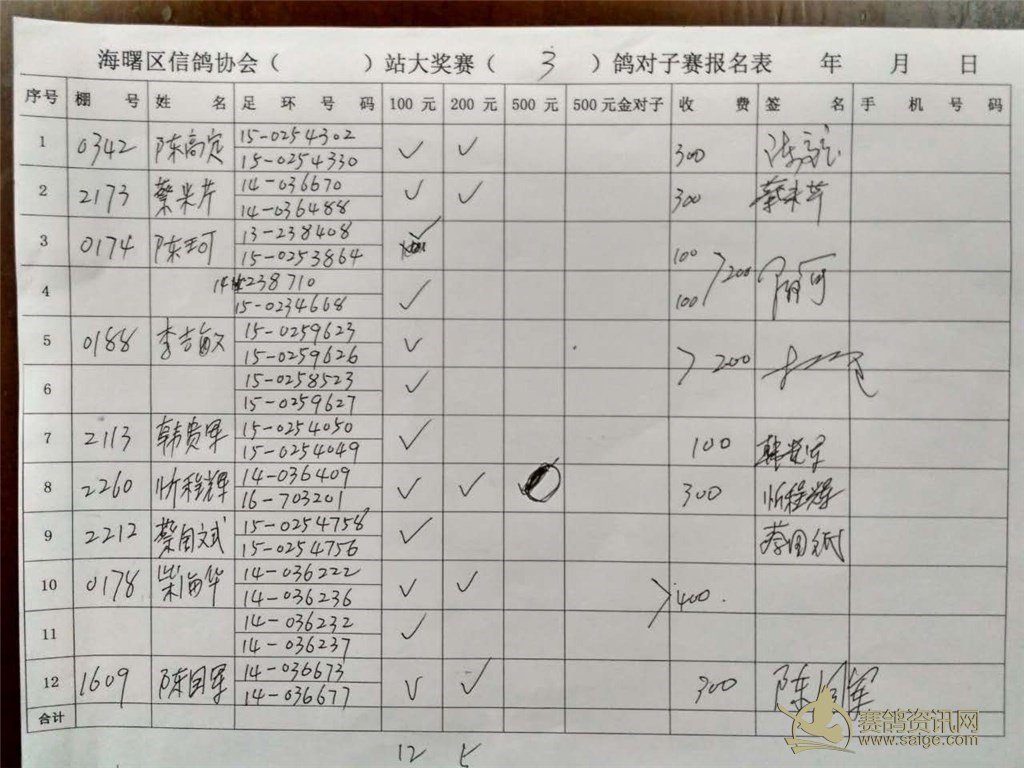 海曙区信鸽协会（ ）站大奖赛（ 3 ）鸽对子赛报名表 年 月 日
序号 棚号 姓名 足环号码 100元 200元 500元 500元金对子 收费 签名 手机号码
1 0342 陈高定 15-0254302 ✓ ✓ 300
15-0254330
2 2173 蔡米芹 14-036670 ✓ ✓ 300 蔡米芹
14-036488
3 0174 陈珂 13-238408 ✓ 100
15-0253864
>200
4 14-238710 ✓ 100
15-0234668
5 0188 李吉敏 15-0259623 ✓
15-0259626
>200
6 15-0258523 ✓
15-0259627
7 2113 韩贵军 15-0254050 ✓ 100 韩贵军
15-0254049
8 2260 忻程辉 14-036409 ✓ ✓ 300 忻程辉
16-703201
9 2212 蔡国斌 15-0254758 ✓ 蔡国斌
15-0254756
10 0178 柴海华 14-036222 ✓ ✓
14-036236
>400.
11 14-036232 ✓
14-036237
12 1609 陈国军 14-036673 ✓ ✓ 300 陈国军
14-036677
合计
12
赛鸽资讯网
www.saige.com